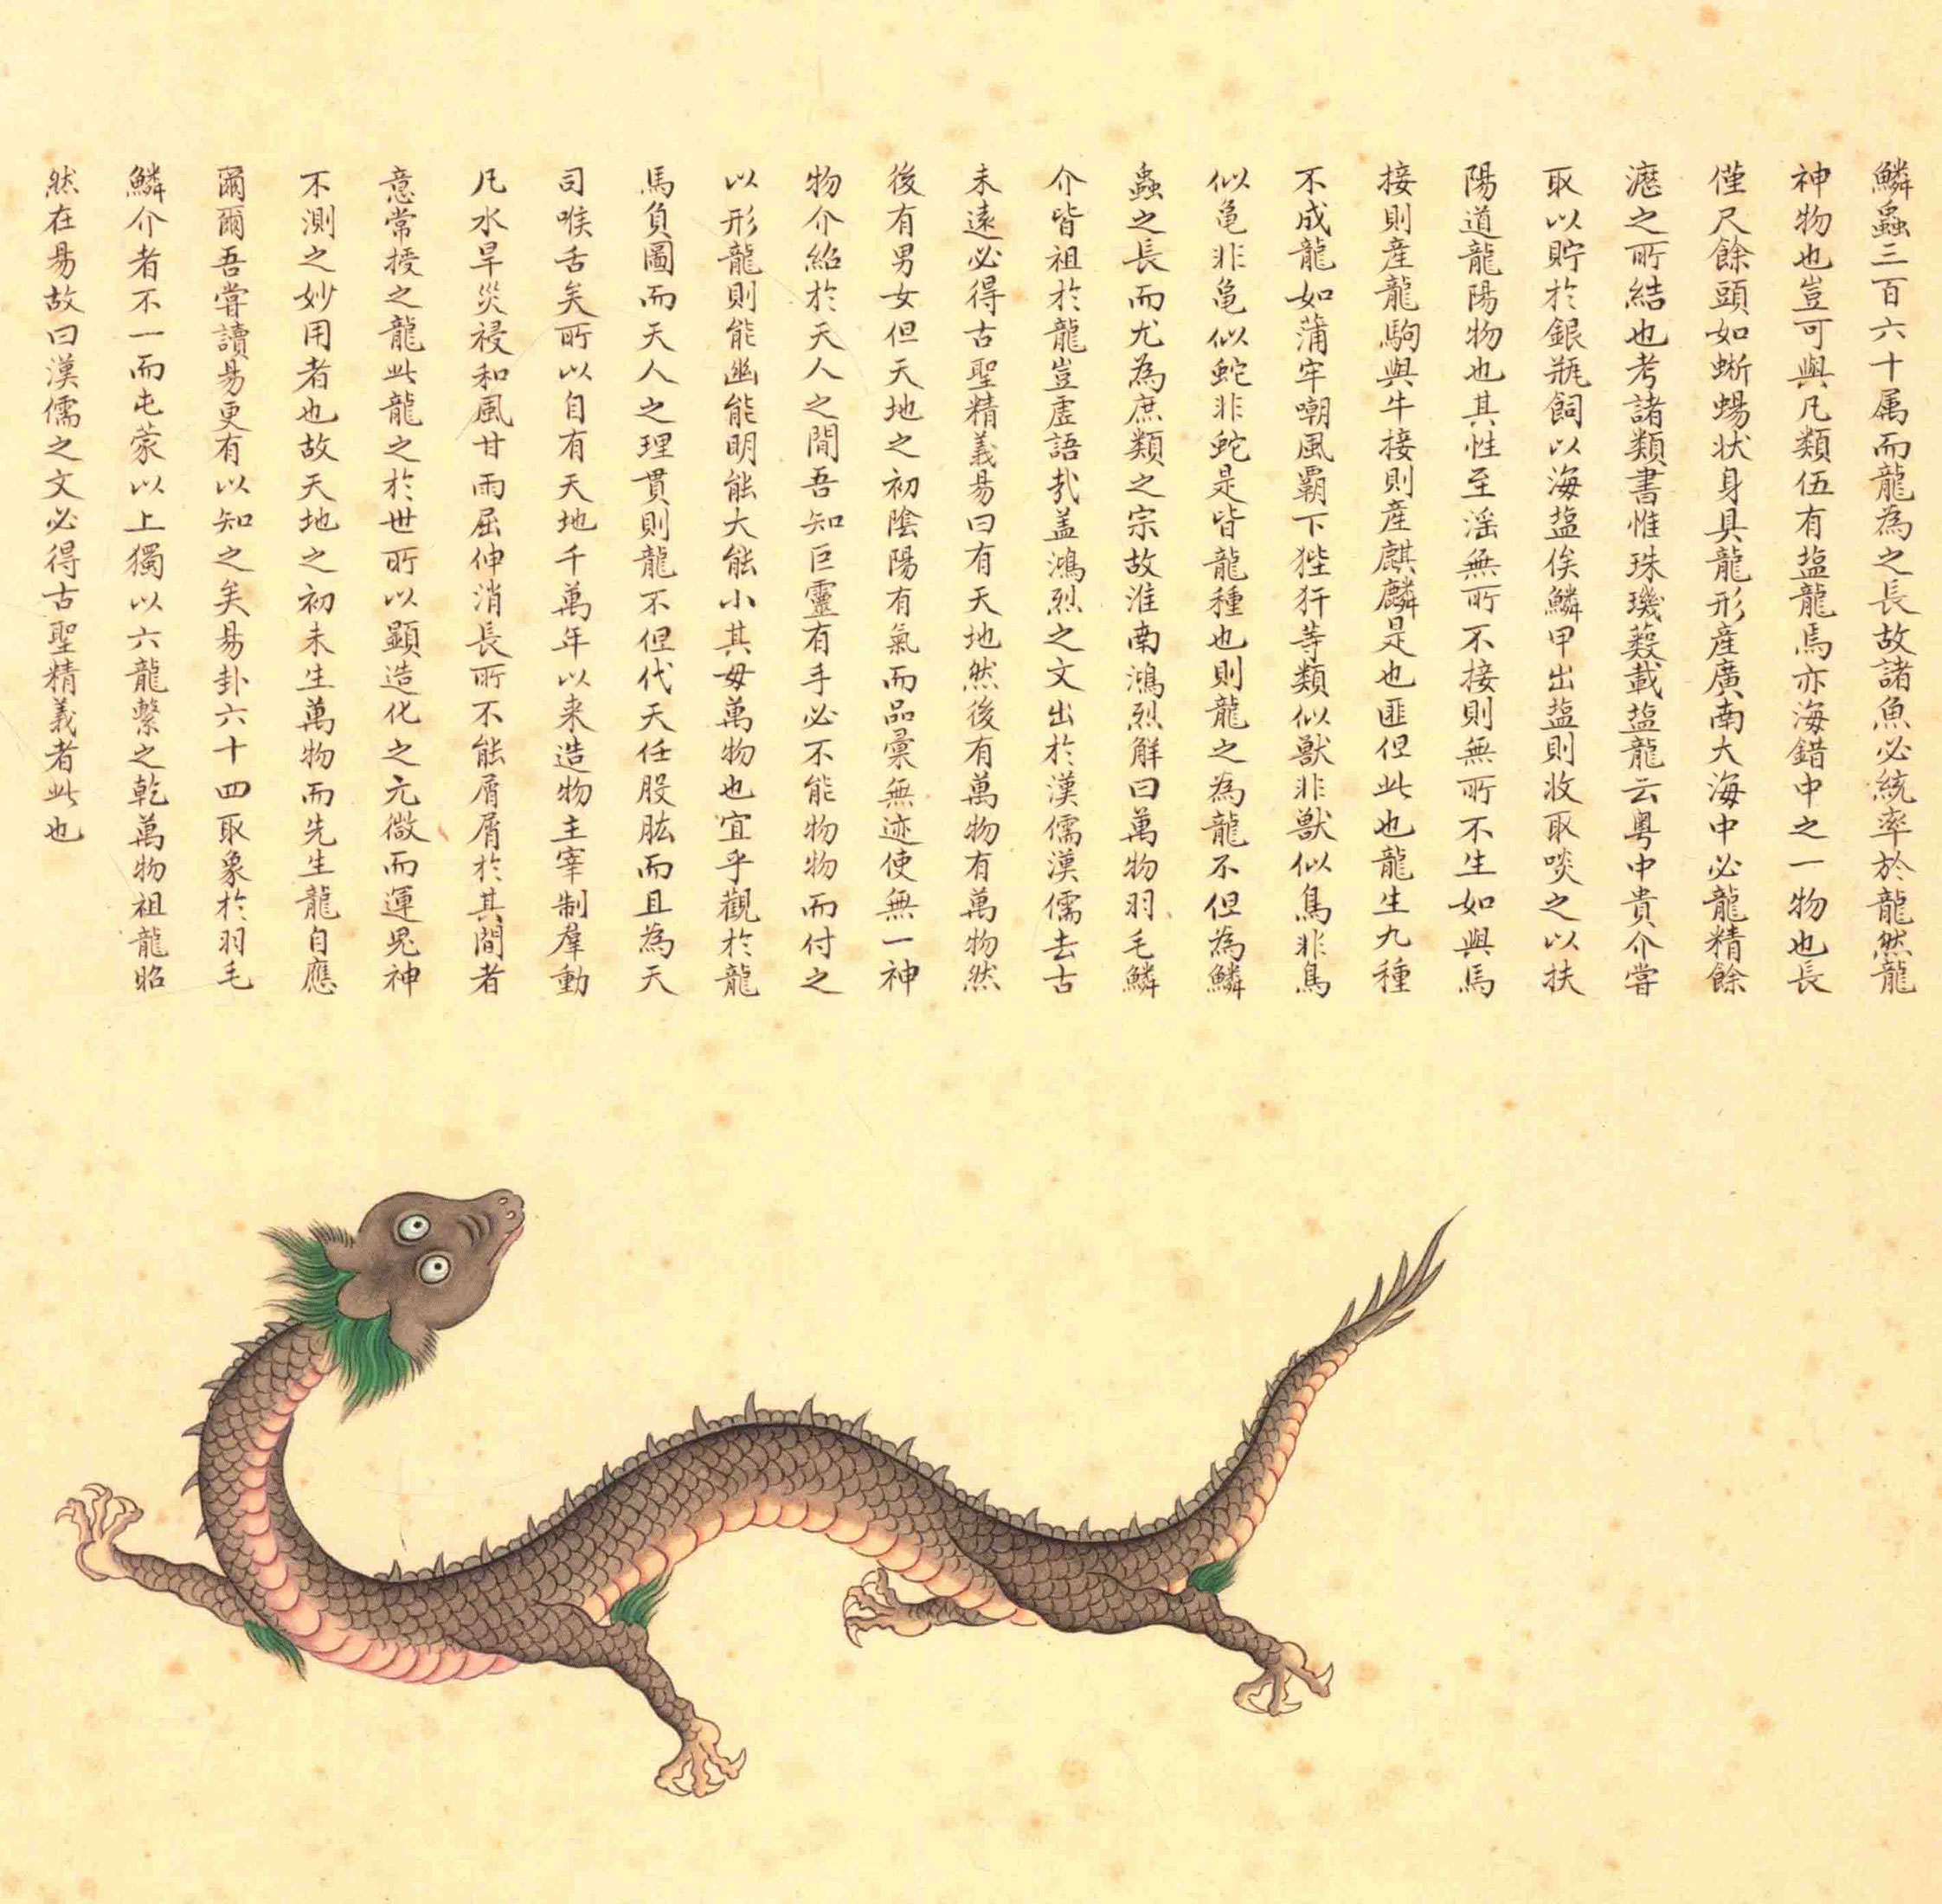 鱗蟲三百六十属而龍為之長故諸魚必統率於龍然龍
神物也豈可與凡類伍有塩龍焉亦海錯中之一物也長
僅尺餘頭如蜥蜴狀身具龍形産廣南大海中必龍精餘
瀝之所結也考諸類書惟珠璣藪載塩龍云粤中貴介嘗
取以貯於銀瓶飼以海塩俟鱗甲出塩則收取啖之以扶
陽道龍陽物也其性至滛無所不接則無所不生如與馬
接則産龍駒與牛接則産麒麟是也匪但此也龍生九種
不成龍如蒲牢嘲風霸下狴犴等類似獸非獸似鳥非鳥
似龟非龟似蛇非蛇是皆龍種也則龍之為龍不但為鱗
蟲之長而尤為庶類之宗故淮南鴻烈觧曰萬物羽毛鱗
介皆祖於龍豈虗語㢤盖鴻烈之文出於漢儒漢儒去古
未遠必得古聖精義易曰有天地然後有萬物有萬物然
後有男女但天地之初陰陽有氣而品彙無迹使無一神
物介紹於天人之間吾知巨靈有手必不能物物而付之
以形龍則能幽能明能大能小其毋萬物也宜乎觀於龍
馬負圖而天人之理貫則龍不但代天任股肱而且為天
司喉舌矣所以自有天地千萬年以来造物主宰制羣動
凡水旱災祲和風甘雨屈伸消長所不能屑屑於其間者
意常授之龍此龍之於世所以顯造化之元微而運鬼神
不測之妙用者也故天地之初未生萬物而先生龍自應
爾爾吾嘗讀易更有以知之矣易卦六十四取象於羽毛
鱗介者不一而屯蒙以上獨以六龍繫之乾萬物祖龍昭
然在易故曰漢儒之文必得古聖精義者此也